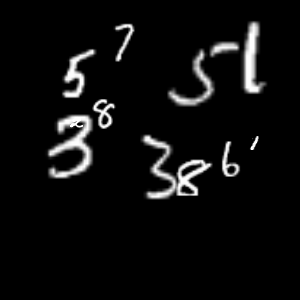 5 7 51
3 8 38 6 '